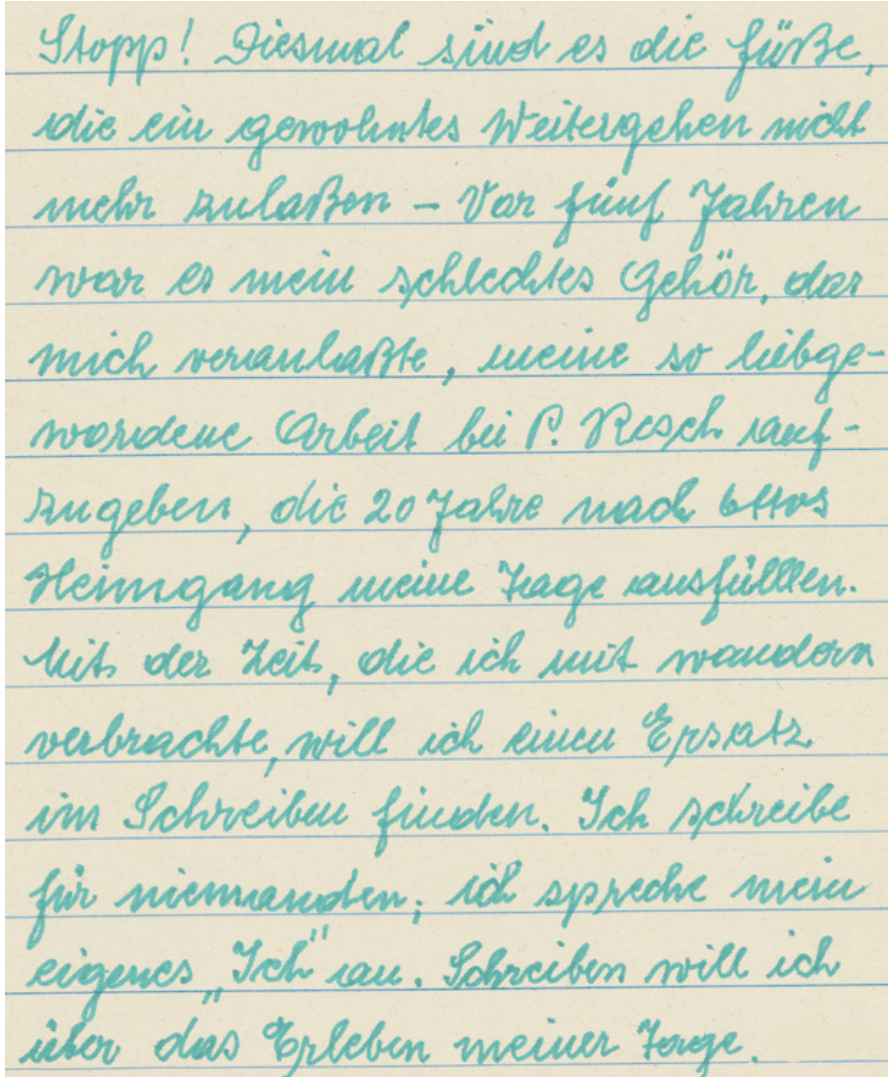 Stopp! Diesmal sind es die Füße,
die ein gewohntes Weitergehen nicht
mehr zulaßen – Vor fünf Jahren
war es mein schlechtes Gehör, das
mich veranlaßte, meine so liebge-
wordene Arbeit bei P. Resch auf-
zugeben, die 20 Jahre nach Ottos
Heimgang meine Tage ausfüllten.
Mit der Zeit, die ich mit wandern
verbrachte, will ich einen Ersatz
im Schreiben finden. Ich schreibe
für niemanden; ich spreche mein
eigenes „Ich" an. Schreiben will ich
über das Erleben meiner Tage.